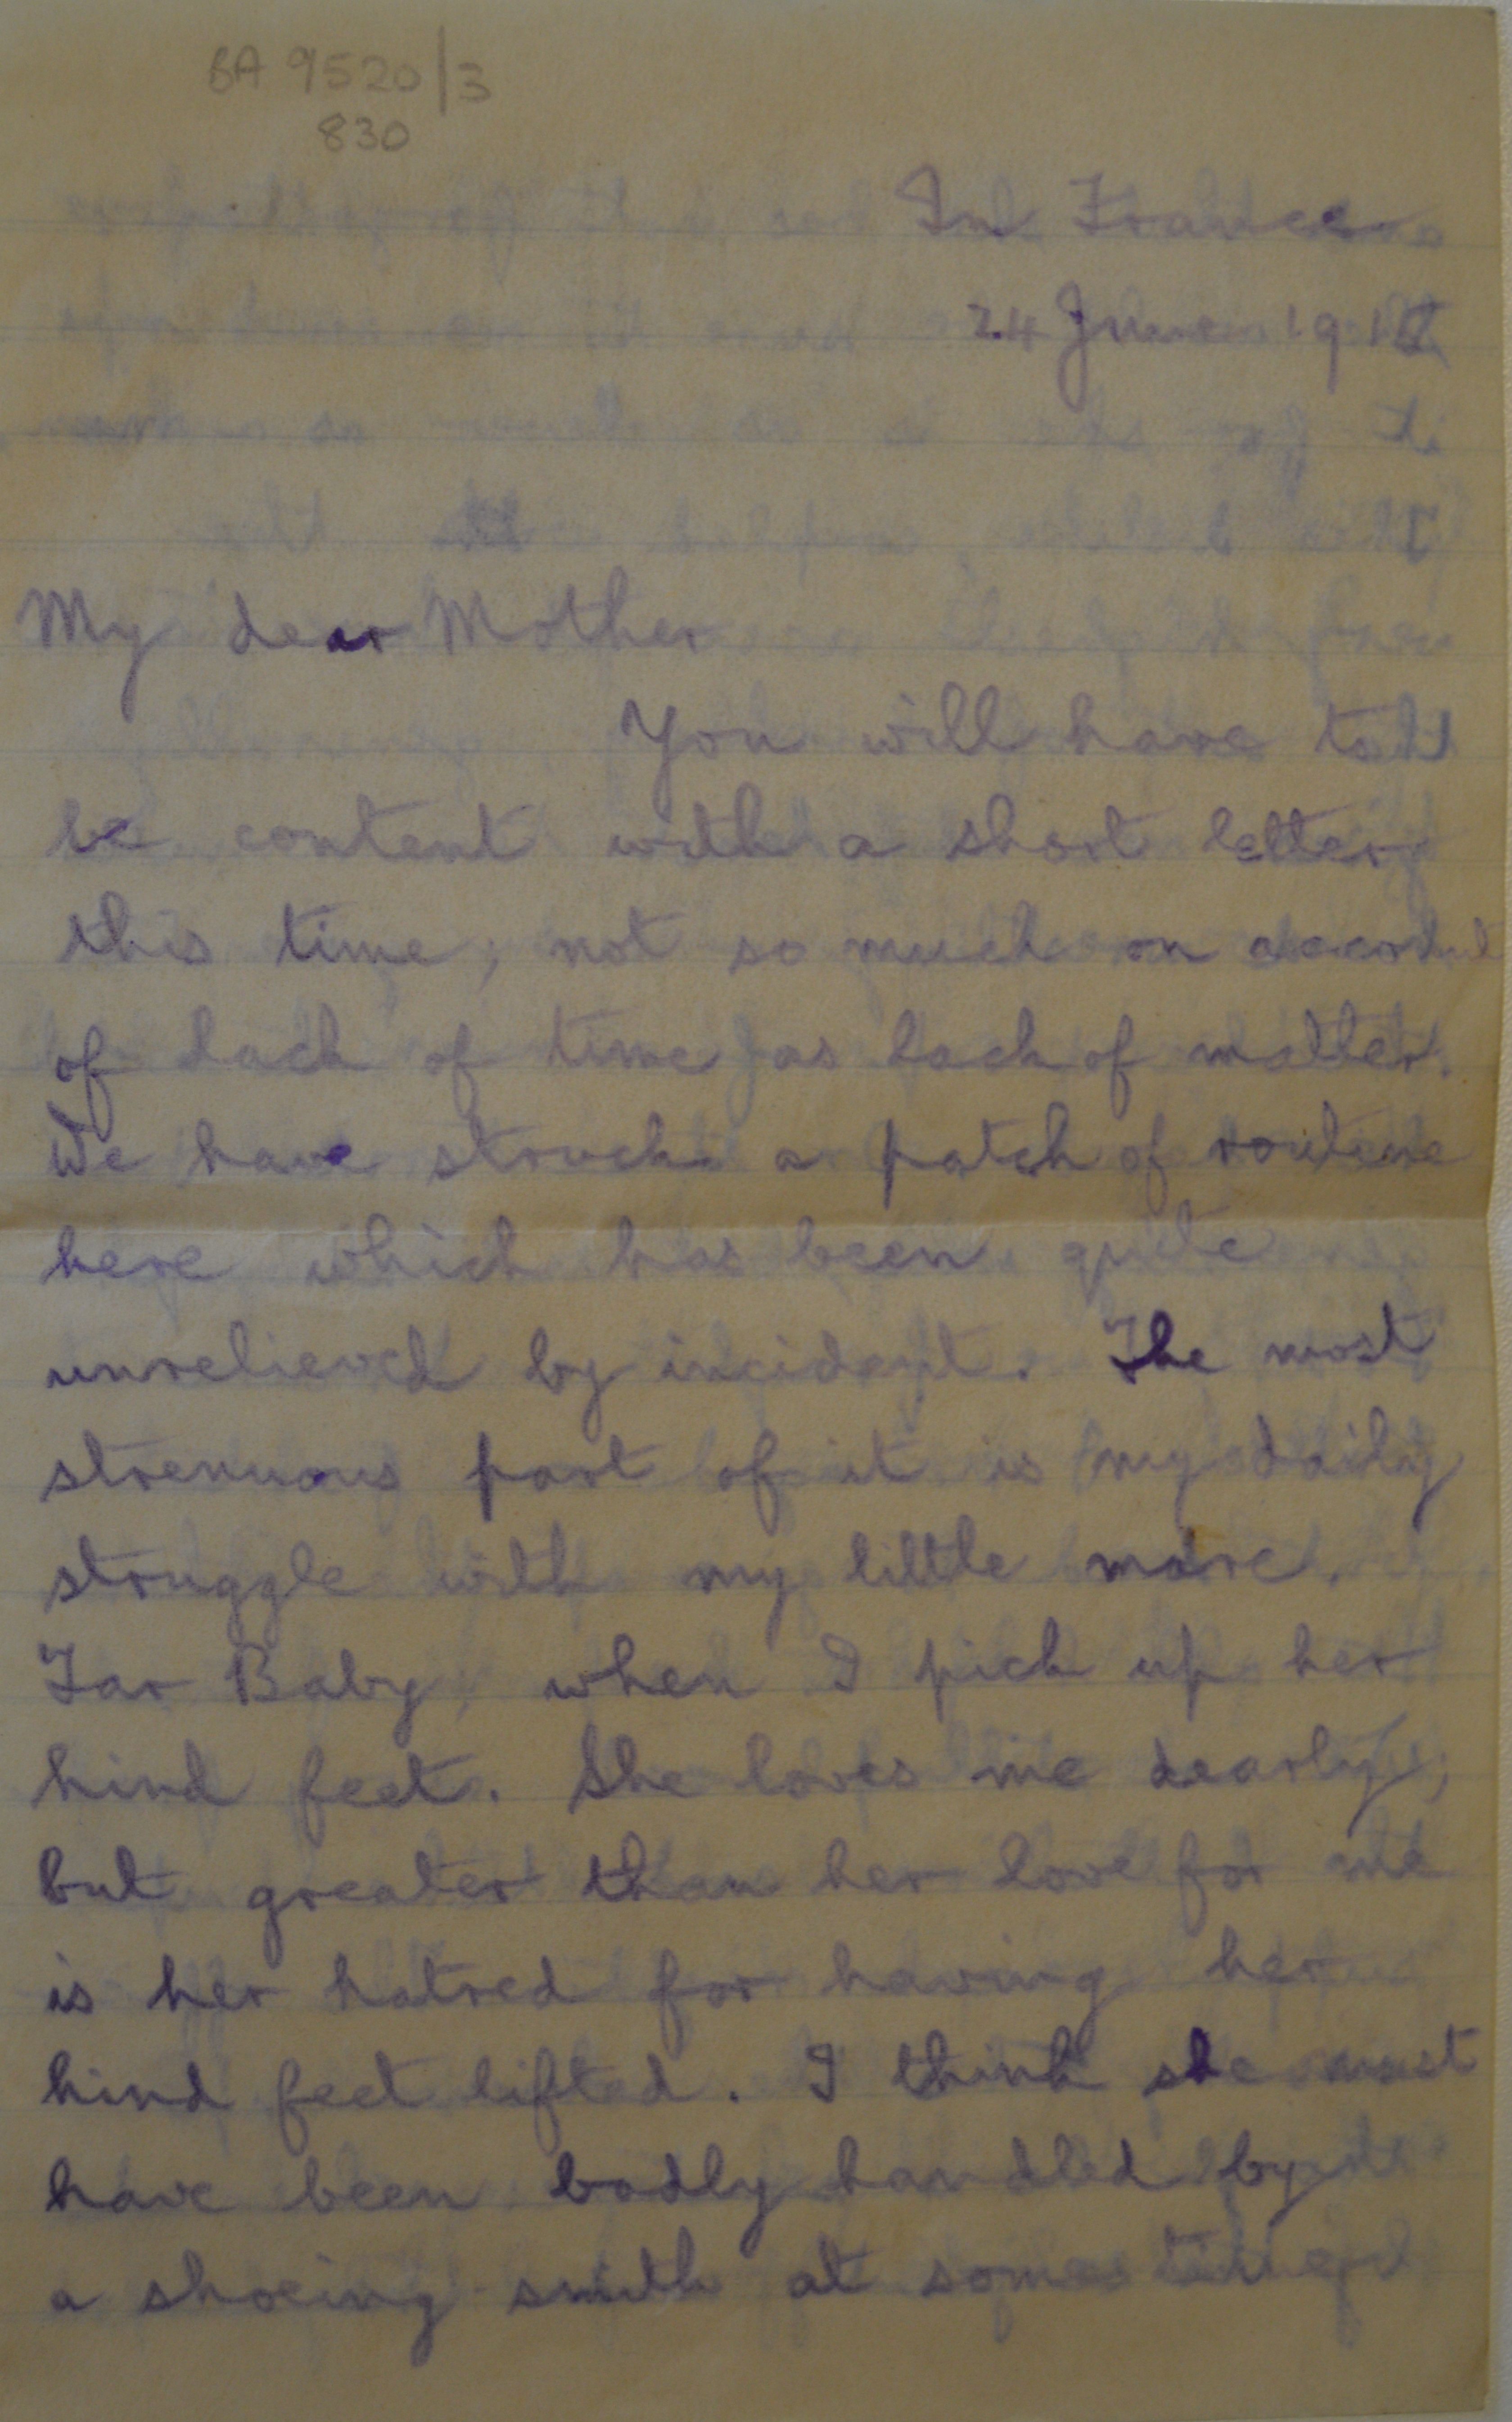 BA 9520/3
830
In France
24 June 191
My dear Mother
You will have to
be content with a short letter
this time, not so much on account
of lack of time as lack of matter.
We have struck a patch of routine
here which has been quite
unrelieved by incident. The most
strenuous part of it is my daily
struggle with my little mare.
Tar Baby, when I pick up her
hind feet. She loves me dearly,
but greater than her love for me
is her hatred for having her
hind feet lifted. I think she must
have been badly handled by
a shoeing smith at some time